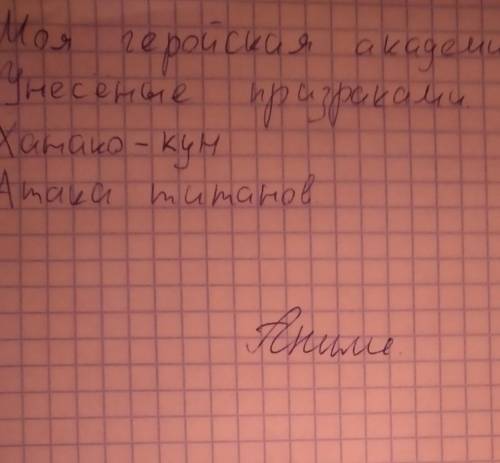 Моя геройская академи
Унесённые призраками.
Ханако-кун
Атака титанов
Аниме.